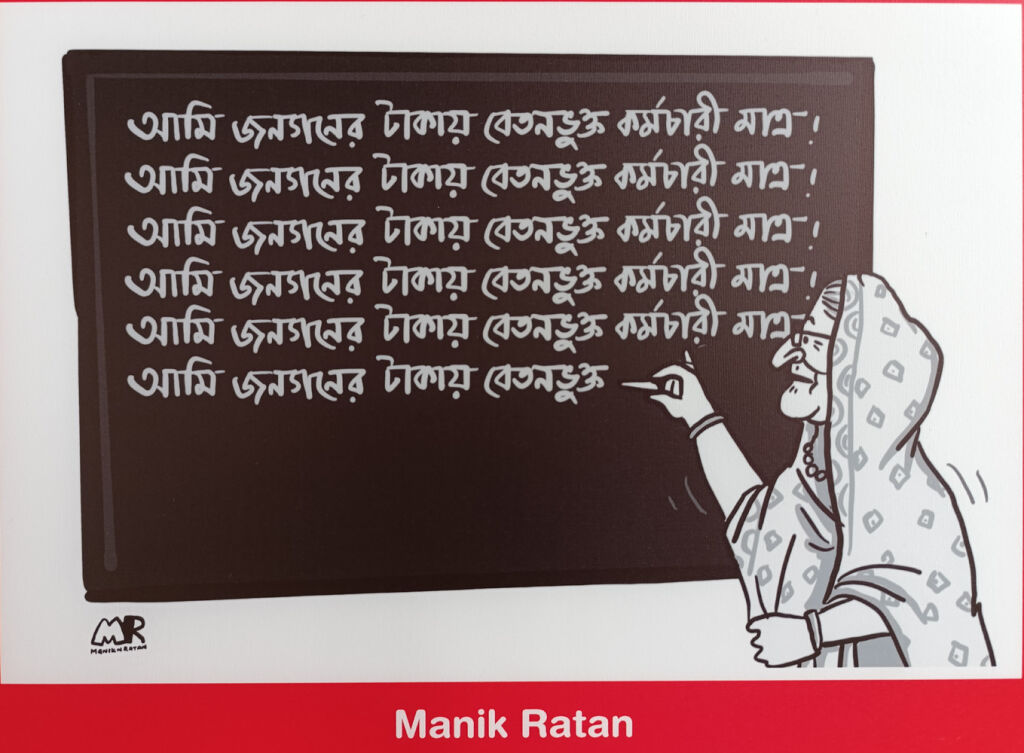 আমি জনগনের টাকায় বেতনভুক্ত কর্মচারী মাত্র!
আমি জনগনের টাকায় বেতনভুক্ত কর্মচারী মাত্র!
আমি জনগনের টাকায় বেতনভুক্ত কর্মচারী মাত্র!
আমি জনগনের টাকায় বেতনভুক্ত কর্মচারী মাত্র!
আমি জনগনের টাকায় বেতনভুক্ত কর্মচারী মাত্র
আমি জনগনের টাকায় বেতনভুক্ত
MR
MANIKNRATAN
Manik Ratan